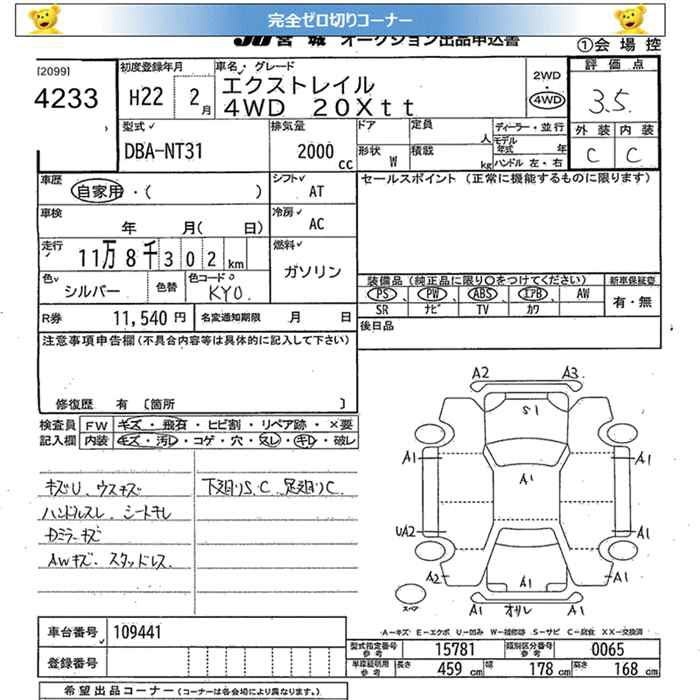 完全ゼロ切りコーナー
JU 宮城 オークション出品申込書
①会場控
[2099]
4233
初度登録年月
H22 2月
車名・グレード
エクストレイル
4WD 20Xtt
2WD
・
4WD
評価点
3.5
外装 内装
C C
型式
DBA-NT31
排気量
2000 cc
ドア 定員 人
形状 W 積載 kg
ディーラー・並行
モデル年式 年
ハンドル 左・右
車歴
自家用・( )
シフト AT
セールスポイント (正常に機能するものに限ります)
車検
年 月( 日)
冷房 AC
走行
11万8千302km
燃料
ガソリン
色 シルバー
色替
色コードNo
KY0.
装備品(純正品に限り○をつけてください)
新車保証書
PS、PW、ABS、エアB、AW
SR ナビ TV カワ
有・無
R券 11,540円
名変通知期限 月 日
後日品
注意事項申告欄(不具合内容等は具体的に記入して下さい)
修復歴 有 〔箇所 〕
検査員記入欄
FW キズ・飛石・ヒビ割・リペア跡・×要
内装 キズ・汚レ・コゲ・穴・スレ・キレ・破レ
キズU、ウスキズ
ハンドルスレ シートキレ
ドミラーキズ
AWキズ、スタッドレス.
下廻りS、C 足廻りC.
A2 A3
S1
A1 A1
A1
UA2 A1
A2 A1 A1
スペア
A1 オリレ A1
A―キズ E―エクボ U―凹み W―補修跡 S―サビ C―腐食 XX―交換済
車台番号 109441
登録番号
型式指定番号 参考 15781
類別区分番号 参考 0065
車庫証明用 参考 長さ 459 cm 幅 178 cm 高さ 168 cm
希望出品コーナー(コーナーは各会場により異なります。)